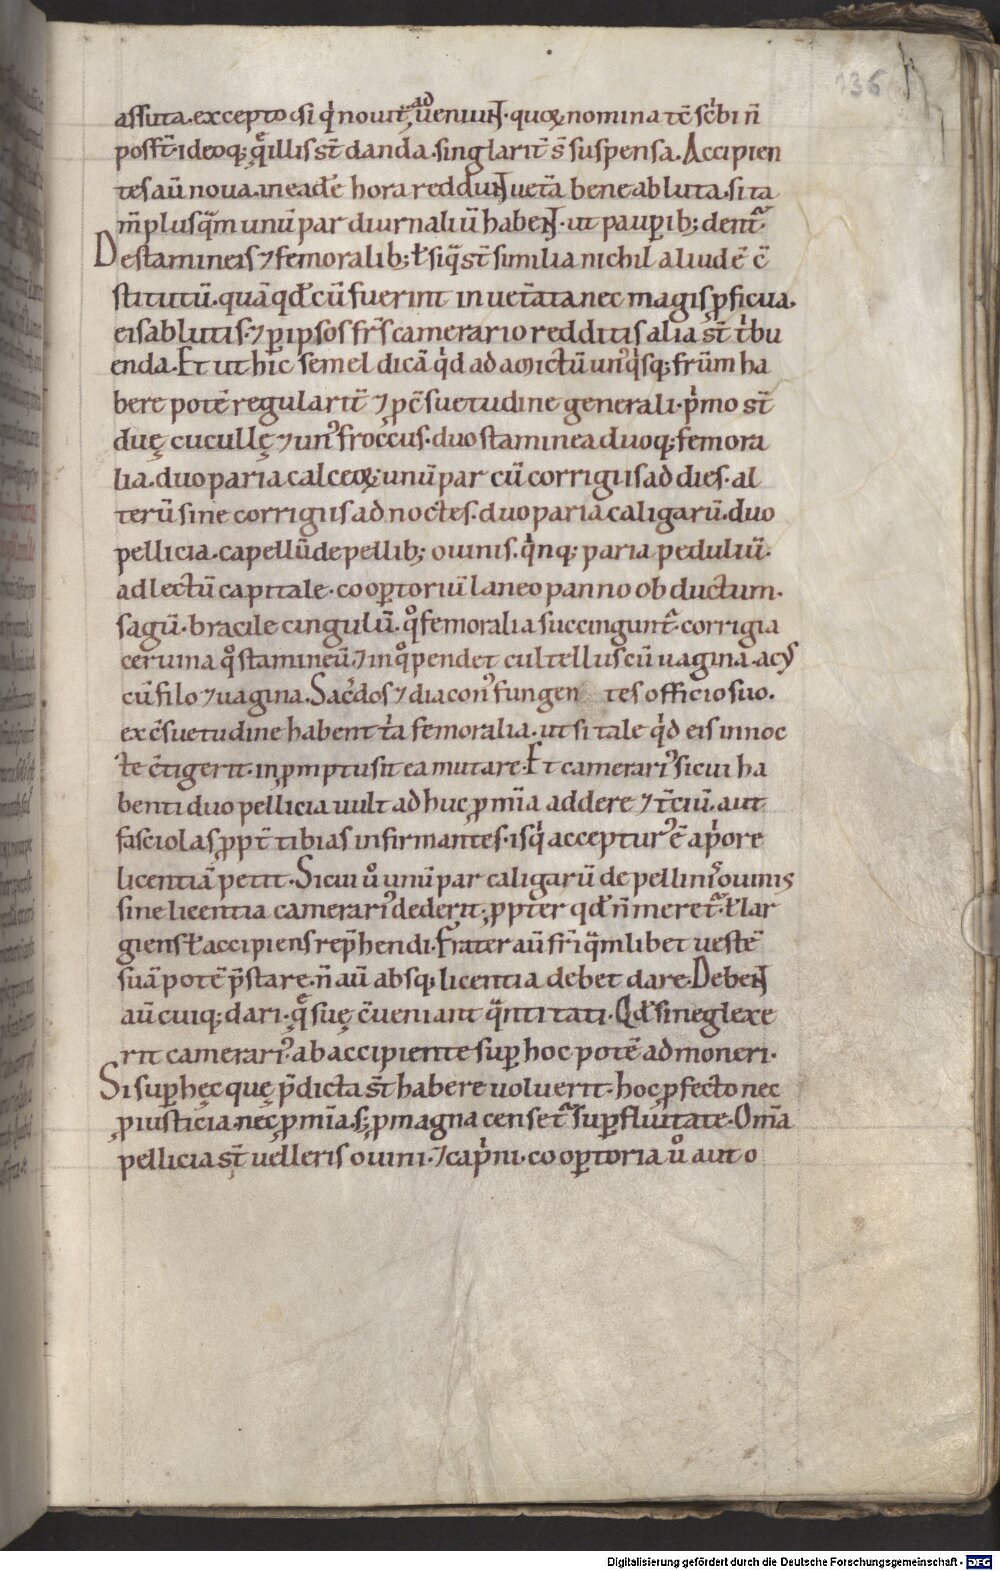 136
assuta. excepto si q̓ nouit̅ ad ueniunt. quoꝝ nomina te̅ sc̓bi n̅
poss̅t. ideoq; q̊ illis st̅ danda. singlarit̅ s̅ suspensa. Accipien
tes au̅ noua. in eade̅ hora reddunt uet̅a bene abluta. si ta
m̅ plusq̅m unu̅ par diurnaliu̅ habent. ut paup̲ib; dent᷑.
De stamineis ⁊ femoralib; ł siq̅ st̅ similia nichil aliud e̅ c̅
stitutu̅. qua̅ qd̅ cu̅ fuerint inuet̅ata nec magis ꝓficua.
eis ablutis. ⁊ ꝑ ipsos fr̅s camerario redditis alia st̅ t̓bu
enda. Et ut hic semel dica̅ q̓d ad amictu̅ unꝰq̓sq; fr̅um ha
bere pote̅ regularit̅ ⁊ ꝓ c̅suetudine generali. p̓mo st̅
duę cucullę ⁊ unꝰ froccus. duo staminea duoq; femora
lia. duo paria calceoꝝ; unu̅ par cu̅ corrigiis ad dies. al
teru̅ sine corrigiis ad noctes. duo paria caligaru̅. duo
pellicia. capellu̅ de pellib; ouinis. q̓nq; paria peduliu̅.
ad lectu̅ capitale. coop̲toriu̅ laneo panno obductum.
sagu̅. bracile cingulu̅. q̊ femoralia succingunt᷑. corrigia
ceruina q̊ stamineu̅. ⁊ in q̊ pendet cultellus cu̅ uagina. acꝰ
cu̅ filo ⁊ uagina. Sac̓dos ⁊ diaconꝰ fungen tes officio suo.
ex c̅suetudine habent t̓a femoralia. ut si tale q̓d eis in noc
te c̅tigerit. in ꝓmptu sit ea mutare. Et camerariꝰ si cui ha
benti duo pellicia uult adhuc ꝓ mi̅a addere ⁊ t̅ciu̅. aut
fasciolas ꝓpt̅ tibias infirmantes. is q̓ accepturꝰ e̅ a p̓ore
licentia̅ petit. Si cui ů unu̅ par caligaru̅ de pellinis ouinis
sine licentia camerariꝰ dederit. ꝓpter qd̅ n̅ meret᷑. ł lar
giens ł accipiens rep̅hendi. Frater au̅ fr̅i q̅mlibet ueste̅
sua̅ pote̅ p̅stare. n̅ au̅ absq; licentia debet dare. Debent
au̅ cuiq; dari. q̊ suę c̅ueniant q̅ntitati. Qd̅ si neglexe
rit camerariꝰ. ab accipiente sup̲ hoc pote̅ admoneri.
Si sup̲ hęc quę p̅dicta st̅ habere uoluerit. hoc ꝓfecto nec
ꝓ iusticia. nec ꝓ mi̅a. s; ꝓ magna censet᷑ sup̲fluitate. Om̅a
pellicia st̅ uelleris ouini. ⁊ cap̓ni. coop̲toria ů aut o
Digitalisierung gefördert durch die Deutsche Forschungsgemeinschaft - DFG